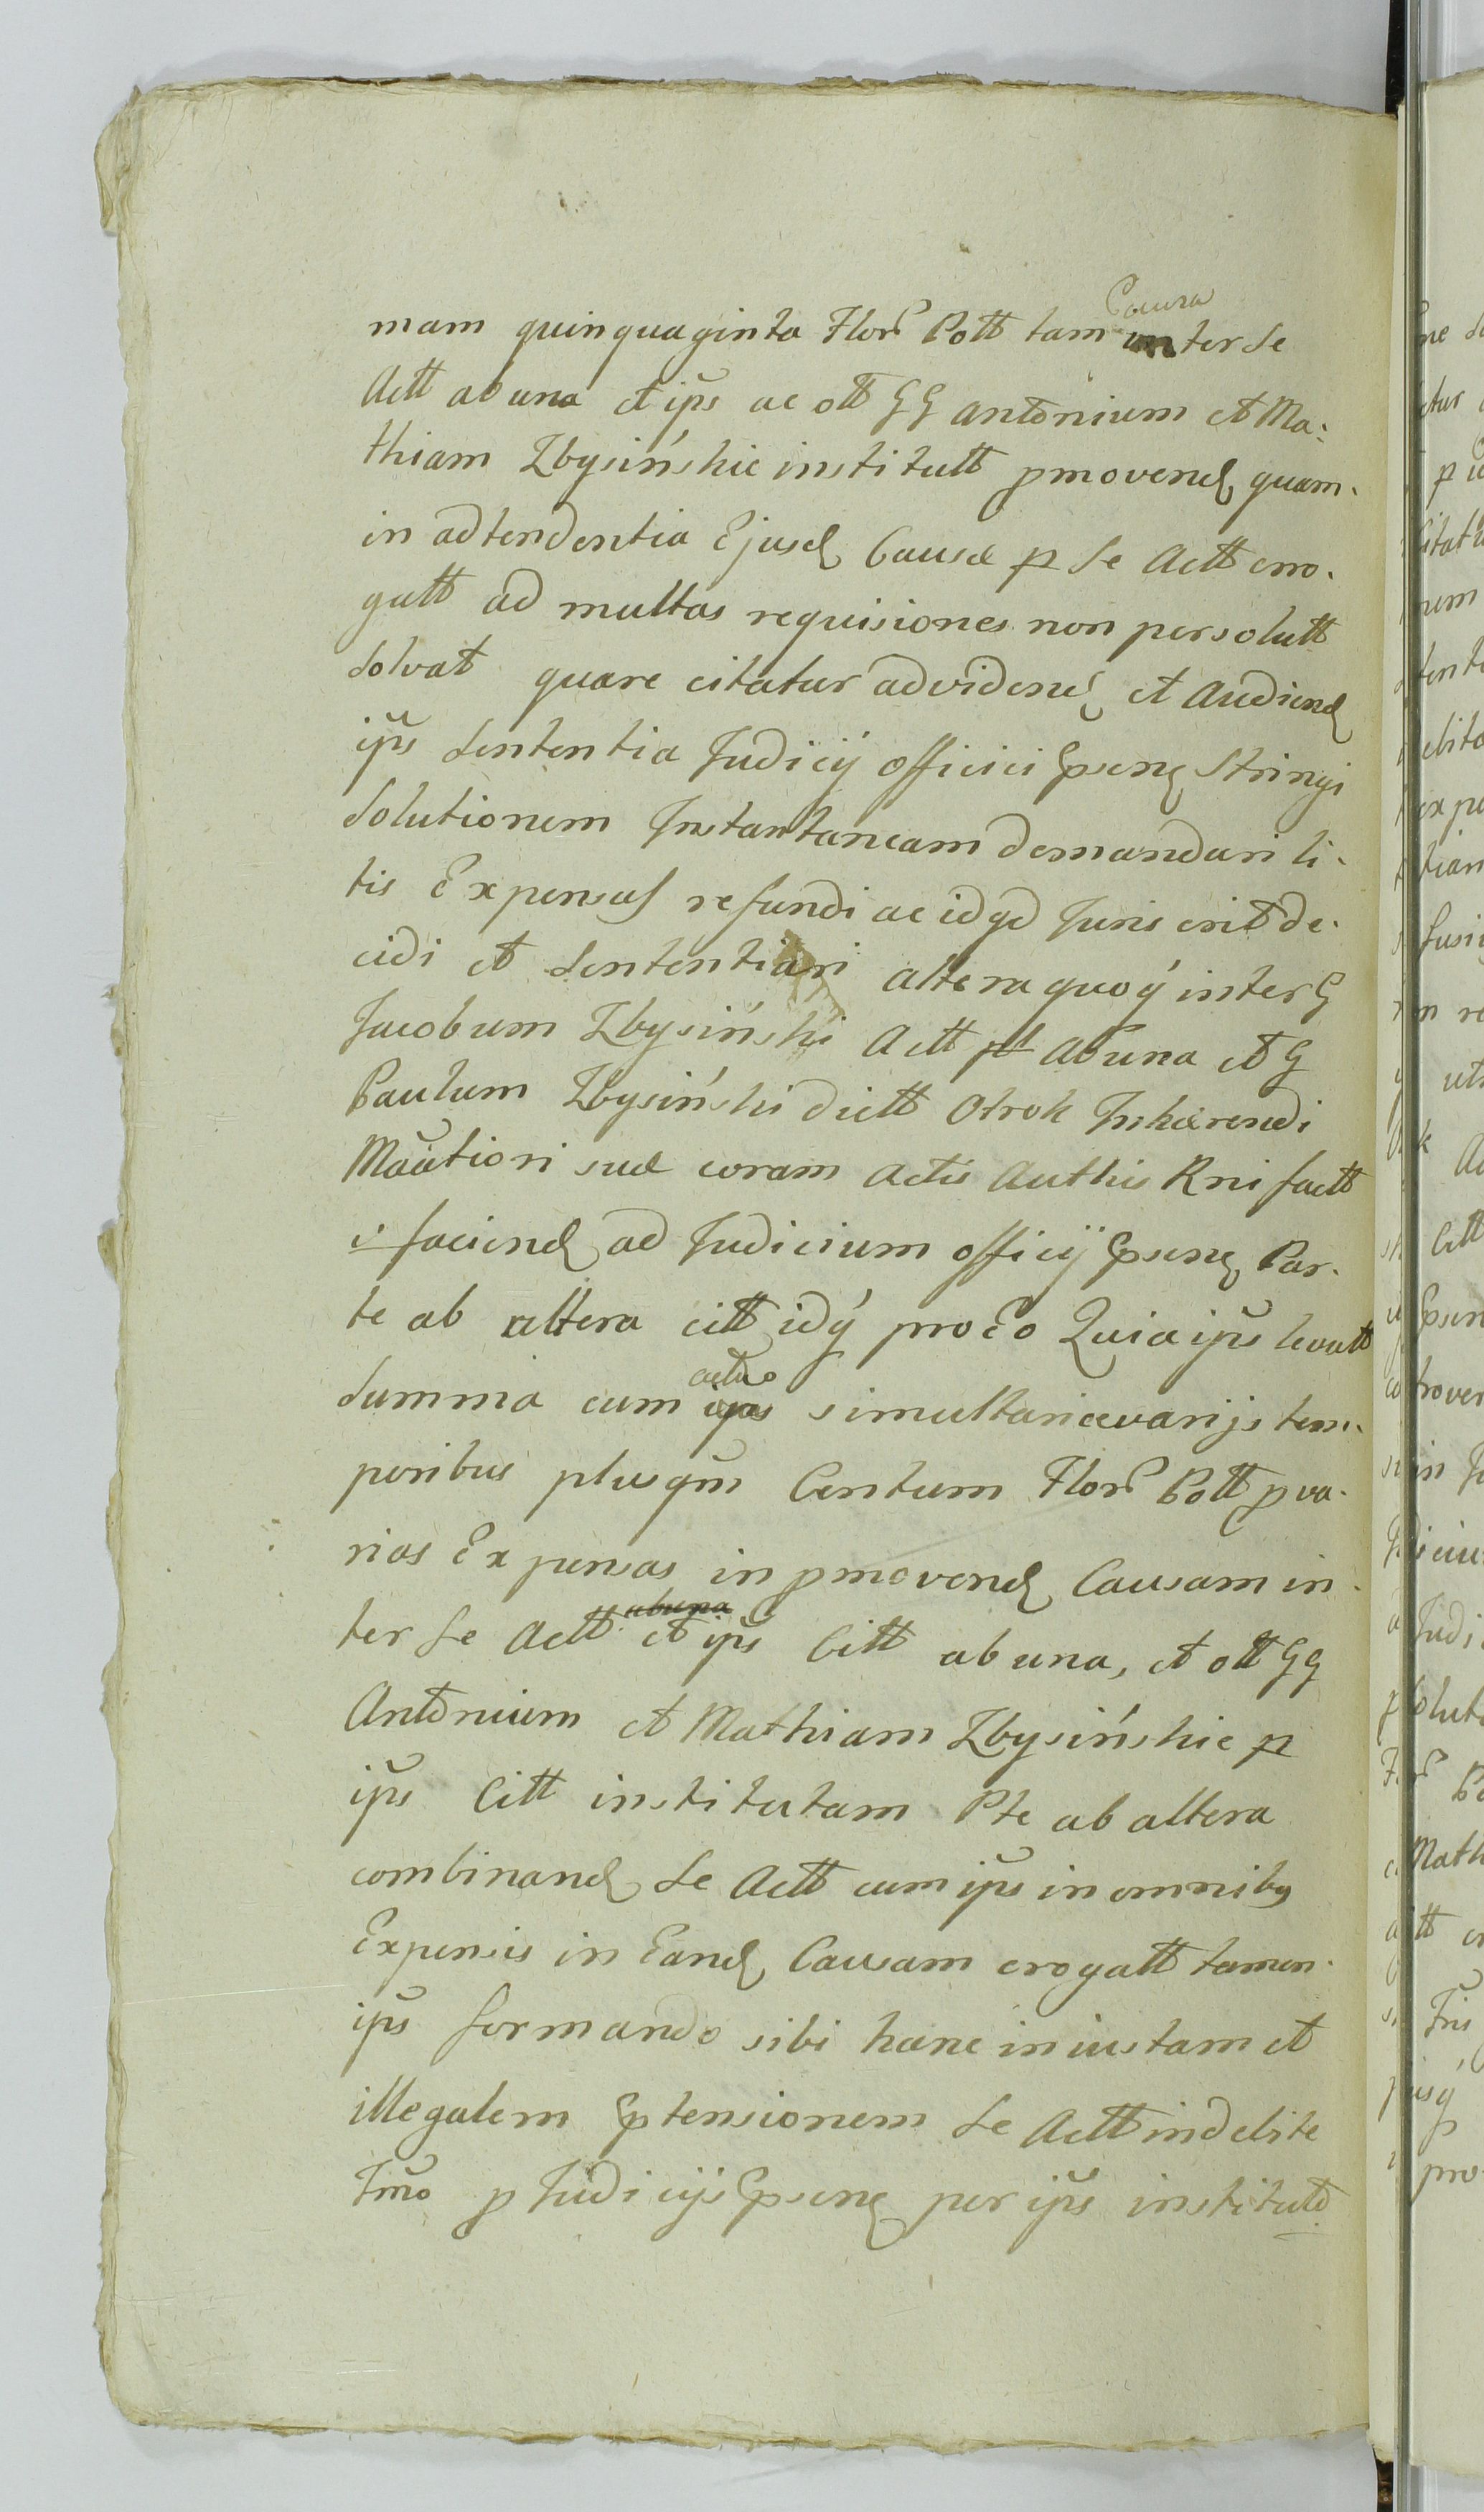 mam quinquaginta Flor Poltt tam Causa inter se
Actt ab una et ips ac ott GG Antonium et Ma:
thiam Zbysińskie institutt pmovend quam.
in adtendentia Ejusd Causæ p se Actt erro.
gatt ad multas requisiones non persolutt
solvat quare citatur ad videnđ et Audiend
ips Sententia Judicÿ officii Epseng Stringi
Solutionem Instantaneam demandari li.
tis Expensas refundi ac id qd Juris erit de.
cidi et sententiari altera quoq́ inter G
Jacobum Zbysiński Actt ab una et G
Paulum Zbysiński dictt Otrok Inhærendi
Mãatiori suæ coram actis Authis Rni factt
v faciend ad Judicium officÿ Epseng Par.
te ab altera citt idq́ pro Eo Quia ips levatt
Summa cum actuo simultanee varijs tem.
poribus plusqm Centum Flor Poltt p va.
rias Expensas in pmovend Causam in.
ter se Actt abuna et ips Citt ab una, et ott GG
Antonium et Mathiam Zbysińskie p
ips Citt institutam Pte ab altera
combinand se Actt cum ips in omnibq
Expensis in Eand Causam erogatt tamen.
ips formando sibi hanc iniustam et
illegalem Eptensionem se Actt indebite
Tmo p Judicijs Epseng per ips institutt